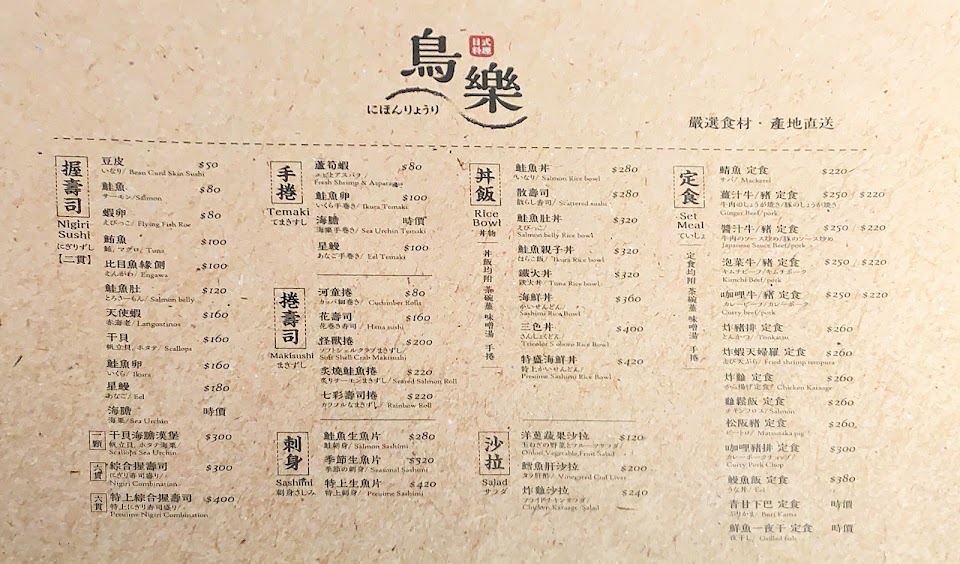 鳥樂
日式
料理
にほんりょうり
嚴選食材・產地直送
握壽司
Nigiri
Sushi
にぎりずし
【二貫】
豆皮 $50
いなり/ Bean Curd Skin Sushi
鮭魚 $80
サーモン/Salmon
蝦卵 $80
えびっこ/ Flying Fish Roe
鮪魚 $100
鮪, マグロ/ Tuna
比目魚緣側 $100
えんがわ/ Engawa
鮭魚肚 $120
とろさーもん/ Salmon belly
天使蝦 $160
赤海老/ Langostinos
干貝 $160
帆立貝, ホタテ/ Scallops
鮭魚卵 $160
いくら/ Ikura
星鰻 $180
あなご/ Eel
海膽 時價
海栗/ Sea Urchin
一顆
干貝海膽漢堡 $300
帆立貝, ホタテ海栗/
Scallops Sea Urchin
六貫
綜合握壽司 $300
にぎり寿司盛り/
Nigiri Combination
六貫
特上綜合握壽司 $400
特上にぎり寿司盛り/
Presime Nigiri Combination
手捲
Temaki
てまきずし
蘆筍蝦 $80
エビとアスパラ/
Fresh Shrimp & Asparagus
鮭魚卵 $100
いくら手巻き/ Ikura Temaki
海膽 時價
海栗手巻き/ Sea Urchin Temaki
星鰻 $100
あなご手巻き/ Eel Temaki
捲壽司
Makisushi
まきずし
河童捲 $80
カッパ細巻き/ Cucumber Rolls
花壽司 $160
花巻き寿司/ Hana sushi
怪獸捲 $200
ソフトシェルクラブまきずし/
Soft Shell Crab Makisushi
炙燒鮭魚捲 $220
炙りサーモンまきずし/ Seared Salmon Roll
七彩壽司捲 $220
カラフルなまきずし/ Rainbow Roll
刺身
Sashimi
刺身さしみ
鮭魚生魚片 $280
鮭刺身/ Salmon Sashimi
季節生魚片 $320
季節の刺身/ Seasonal Sashimi
特上生魚片 $420
特上刺身/ Presime Sashimi
丼飯
Rice
Bowl
丼物
丼飯均附 茶碗蒸 味噌湯 手捲
鮭魚丼 $280
いなり/ Salmon Rice bowl
散壽司 $280
散らし寿司/ Scattered sushi
鮭魚肚丼 $320
えびっこ/
Salmon belly Rice bowl
鮭魚親子丼 $320
はらこ飯/ Ikura Rice bowl
鐵火丼 $320
鉄火丼/ Tuna Rice bowl
海鮮丼 $360
かいせんどん/
Sashimi Rice Bowl
三色丼 $400
さんしょくどん/
Tricolor's shore Rice Bowl
特盛海鮮丼 $420
特上かいせんどん/
Presime Sashimi Rice Bowl
沙拉
Salad
サラダ
洋蔥蔬果沙拉 $120
玉ねぎの野菜とフルーツサラダ/
Onion Vegetable Fruit Salad
鱈魚肝沙拉 $200
タラ肝酢/ Vinegared Cod Liver
炸雞沙拉 $240
フライドチキンサラダ/
Chicken Karaage Salad
定食
Set
Meal
ていしょ
定食均附 茶碗蒸 味噌湯 手捲
鯖魚 定食 $220
サバ/ Mackerel
薑汁牛/豬 定食 $250 / $220
牛肉のしょうが焼き/豚のしょうが焼き/
Ginger Beef/pork
醬汁牛/豬 定食 $250 / $220
牛肉のソース炒め/豚のソース炒め
Japanese Sauce Beef/pork
泡菜牛/豬 定食 $250 / $220
キムチビーフ/キムチポーク
Kimchi Beef/pork
咖哩牛/豬 定食 $250 / $220
カレービーフ/カレーポーク
Curry beef/pork
炸豬排 定食 $260
とんかつ/ Tonkatsu
炸蝦天婦羅 定食 $260
えび天ぷら/ Fried shrimp tempura
炸雞 定食 $260
から揚げ定食/ Chicken Karaage
雞鬆飯 定食 $260
チキンフロス/ Salmon
松阪豬 定食 $260
ピートロ/ Matsusaka pig
咖哩豬排 定食 $300
カレーポークチョップ/
Curry Pork Chop
鰻魚飯 定食 $380
うな丼/ Eel
青甘下巴 定食 時價
ぶりかま/ Buri Kama
鮮魚一夜干 定食 時價
一夜干し/ Grilled fish